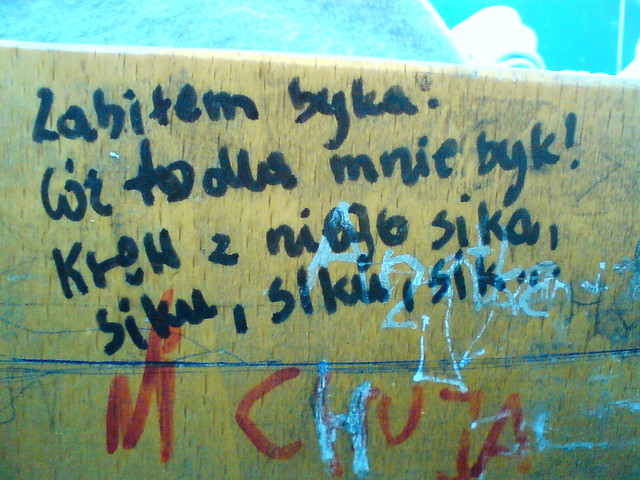 Zabiłem byka.
Cóż to dla mnie byk!
Krew z niego sika,
siku, siku, sik...
M CHUJA